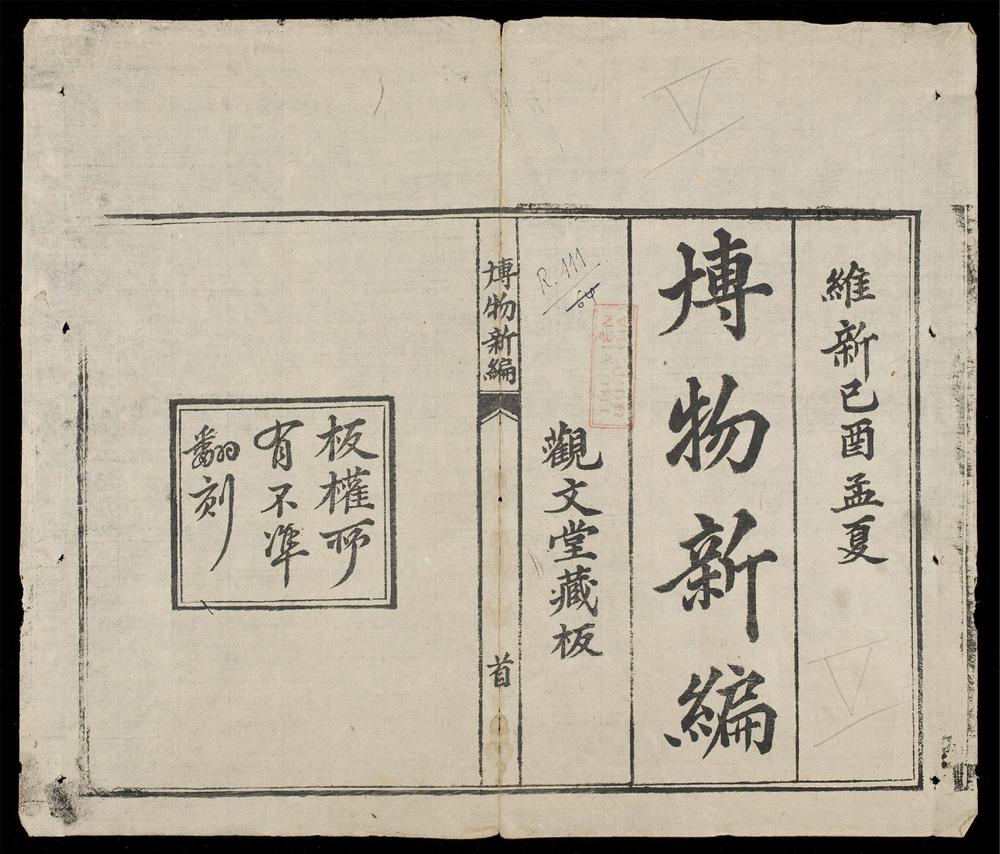 維新已酉孟夏
博物新編
觀文堂藏板
R.111
64
博物新編
首
板權所
有不準
翻刻
V
V